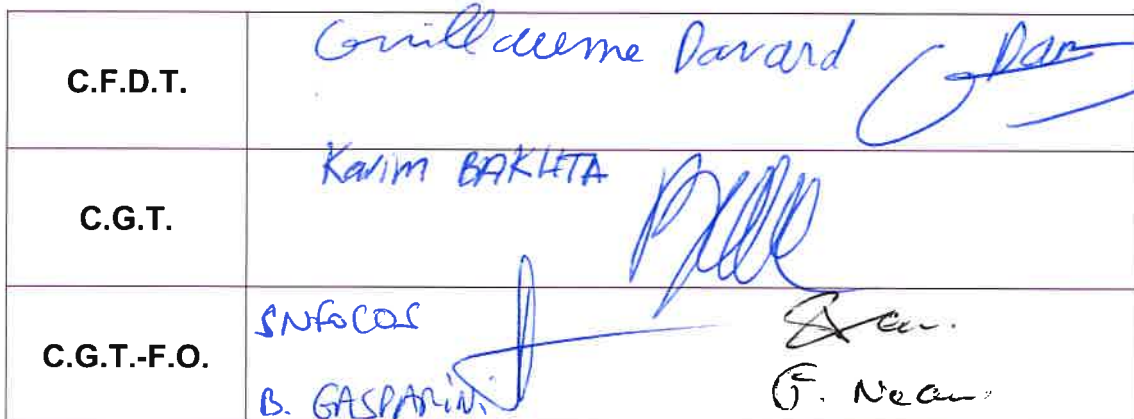 C.F.D.T.
Guillaume Davard
C.G.T.
Karim BAKHTA
C.G.T.-F.O.
SNFOCOS
B. GASPARINI
F.